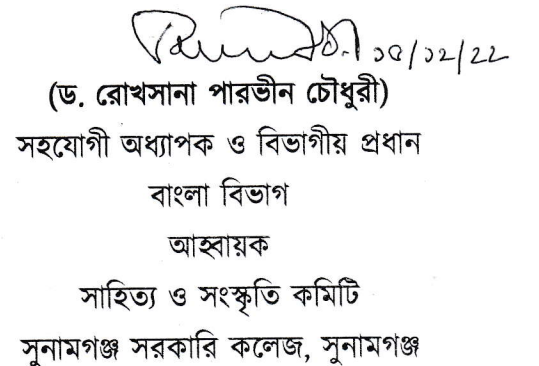 ১৫/১২/২২
(ড. রোখসানা পারভীন চৌধুরী)
সহযোগী অধ্যাপক ও বিভাগীয় প্রধান
বাংলা বিভাগ
আহ্বায়ক
সাহিত্য ও সংস্কৃতি কমিটি
সুনামগঞ্জ সরকারি কলেজ, সুনামগঞ্জ